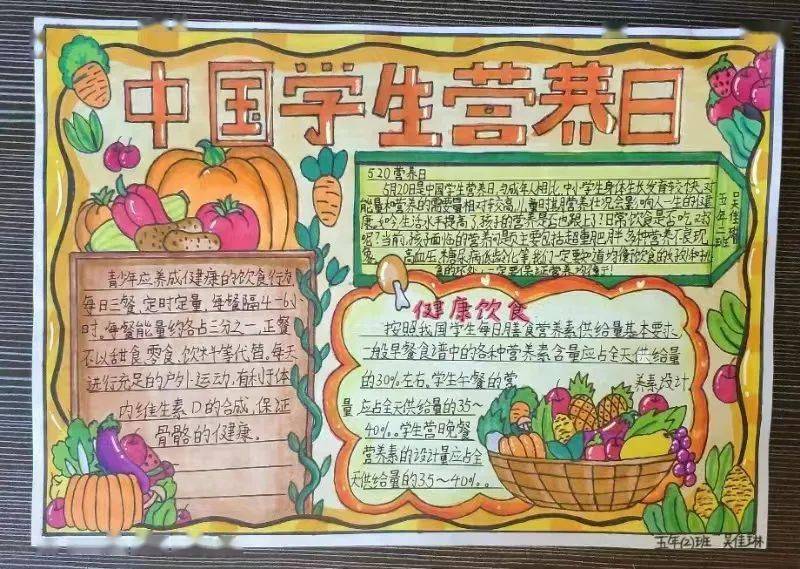 中国学生营养日
520营养日
5月20日是中国学生营养日,与成年人相比,中小学生身体生长发育较快,对
能量和营养的需要量相对较高,儿童时其月营养状况会影响人一生的健
康
呢?当前,孩子面临的营养问题主要包括超重肥胖、多种营养不良现
高血压、糖尿病低龄化等我们一定要知道均衡饮食的好
五年二班
青少年应养成健康的饮食行为
每日三餐,定时定量,每餐隔4-6小
时。每餐能量约各占三分之一,正餐
不以甜食、零食、饮料等代替。每天
进行充足的户外运动,有利于体
内维生素D的合成,保证
骨骼的健康。
健康饮食
按照我国学生每日膳食营养素供给量基本要求
一般早餐食谱中的各种营养素含量应占全天供给量
的30%左右。学生午餐的营 养素设计
量应占全天供给量的35~
40%。学生营日晚餐
营养素的设计量应占全
天供给量的35~40%。
五年(2)班 吴佳琳